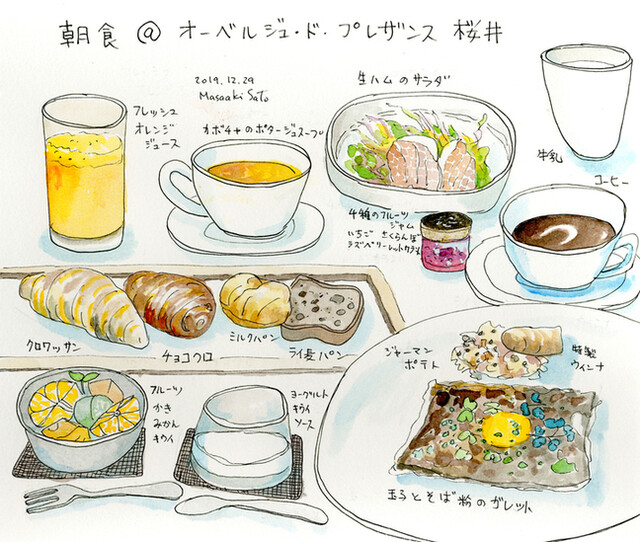 朝食 @ オーベルジュ・ド・プレザンス 桜井
2019.12.29
Masaaki Sato
フレッシュ
オレンジ
ジュース
カボチャのポタージュスープ
生ハムのサラダ
牛乳
コーヒー
4種のフルーツ
ジャム
いちご さくらんぼ
ラズベリー レットカラン
クロワッサン
チョコクロ
ミルクパン
ライ麦パン
フルーツ
かき
みかん
キウイ
ヨーグルト
キウイ
ソース
ジャーマン
ポテト
特製
ウインナ
玉子とそば粉のガレット